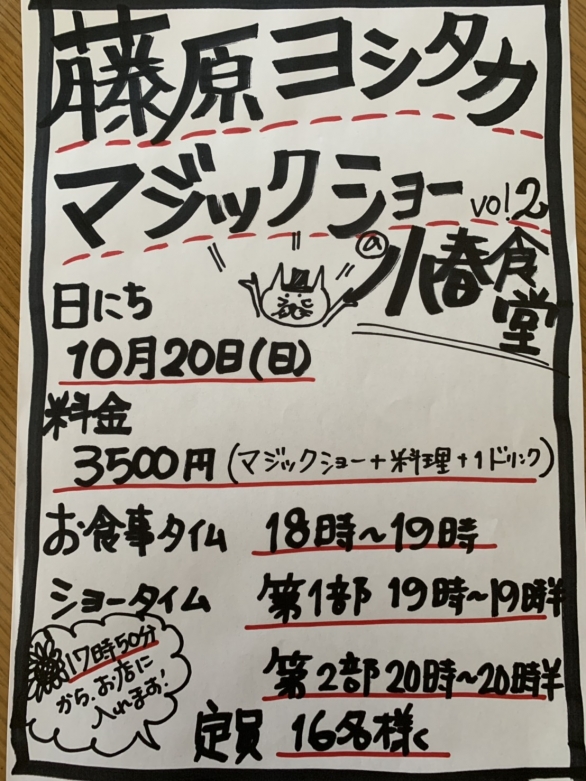 藤原ヨシタカ
マジックショーvol.2
@小春食堂
日にち
10月20日(日)
料金
3500円(マジックショー+料理+1ドリンク)
お食事タイム 18時~19時
ショータイム 第1部 19時~19時半
第2部 20時~20時半
17時50分
から、お店に
入れます!
定員 16名様